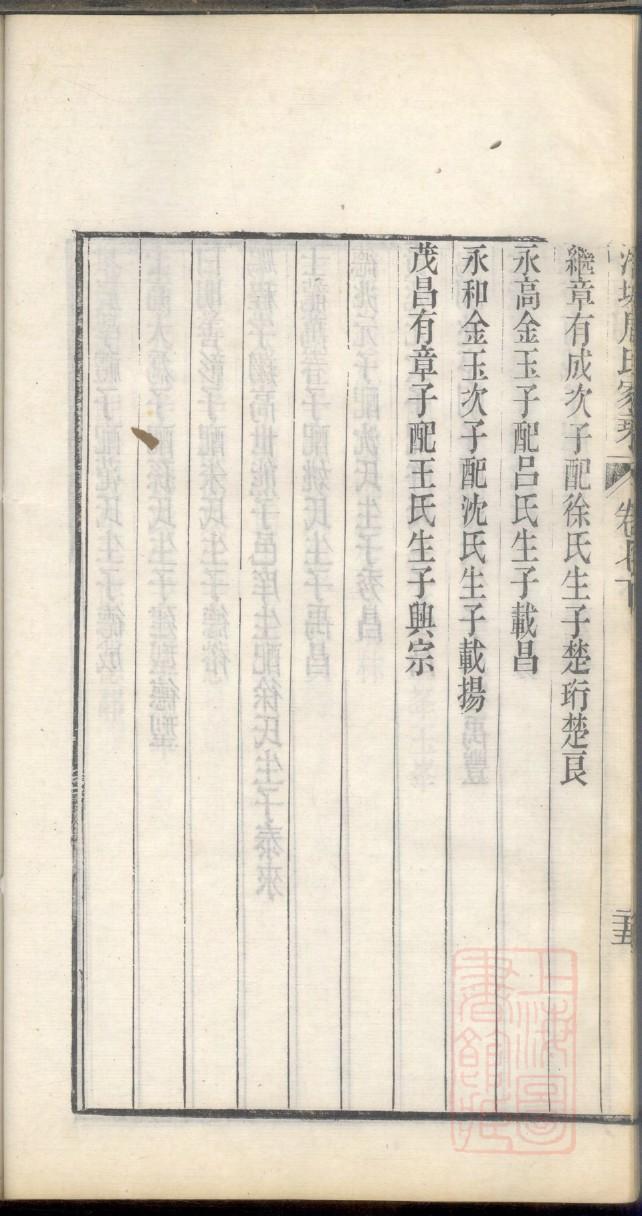 繼章有成次子配徐氏生子楚珩楚良
永高金玉子配呂氏生子載昌
永和金玉次子配沈氏生子載揚
茂昌有章子配王氏生子興宗
上海圖書館藏